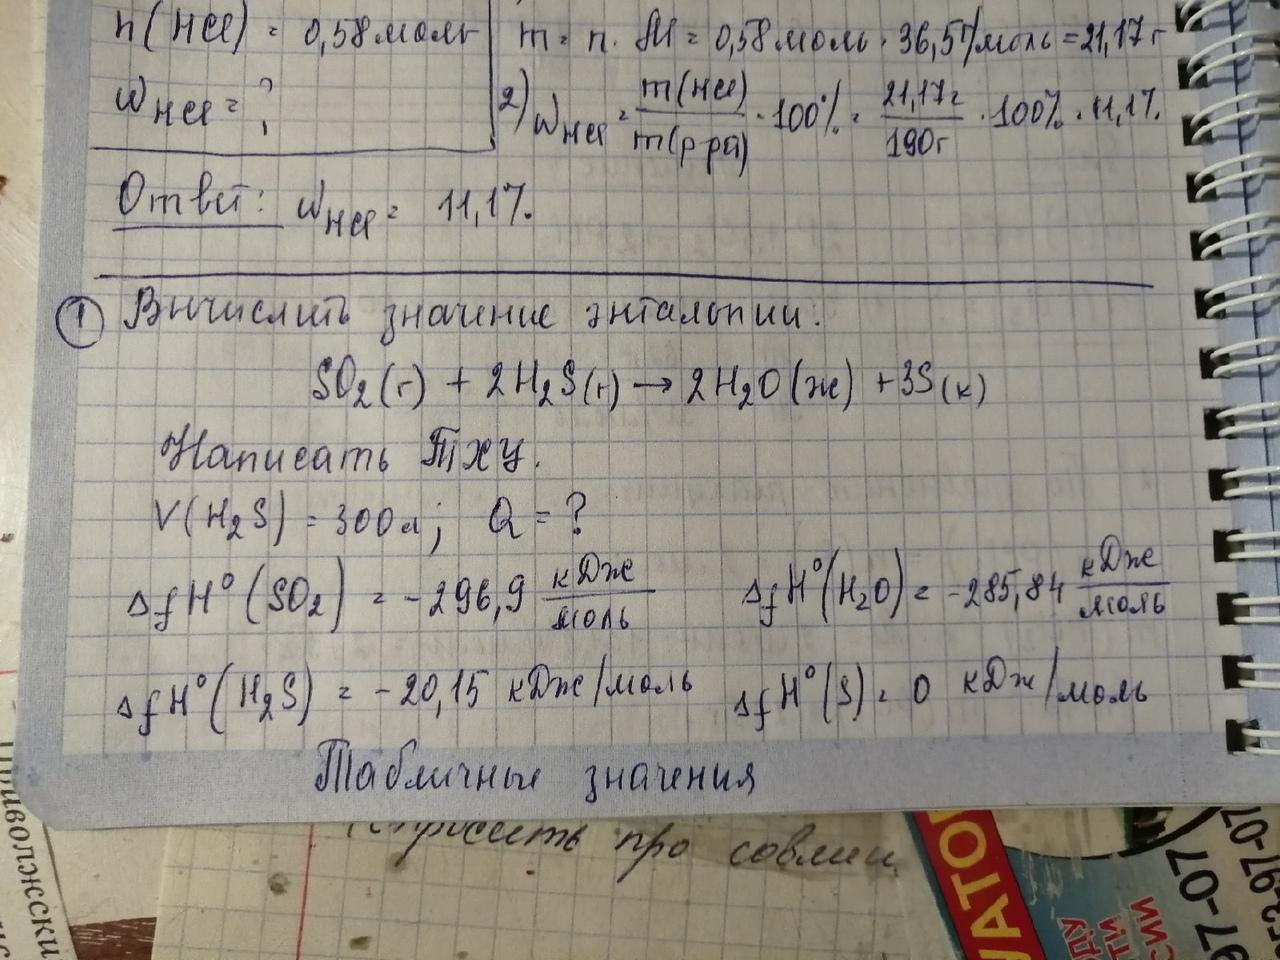 n(HCl) = 0,58 моль
m = n · M = 0,58 моль · 36,5 г/моль = 21,17 г
ωHCl = ?
2) ωHCl = m(HCl)/m(р-ра) · 100% = 21,17г/190г · 100% = 11,1%
Ответ: ωHCl = 11,1%.
① Вычислить значение энталопии.
SO₂(г) + 2H₂S(г) → 2H₂O(ж) + 3S(к)
Написать ТХУ.
V(H₂S) = 300л; Q = ?
ΔfH°(SO₂) = -296,9 кДж/моль
ΔfH°(H₂O) = -285,84 кДж/моль
ΔfH°(H₂S) = -20,15 кДж/моль
ΔfH°(S) = 0 кДж/моль
Табличные значения
про
97-07